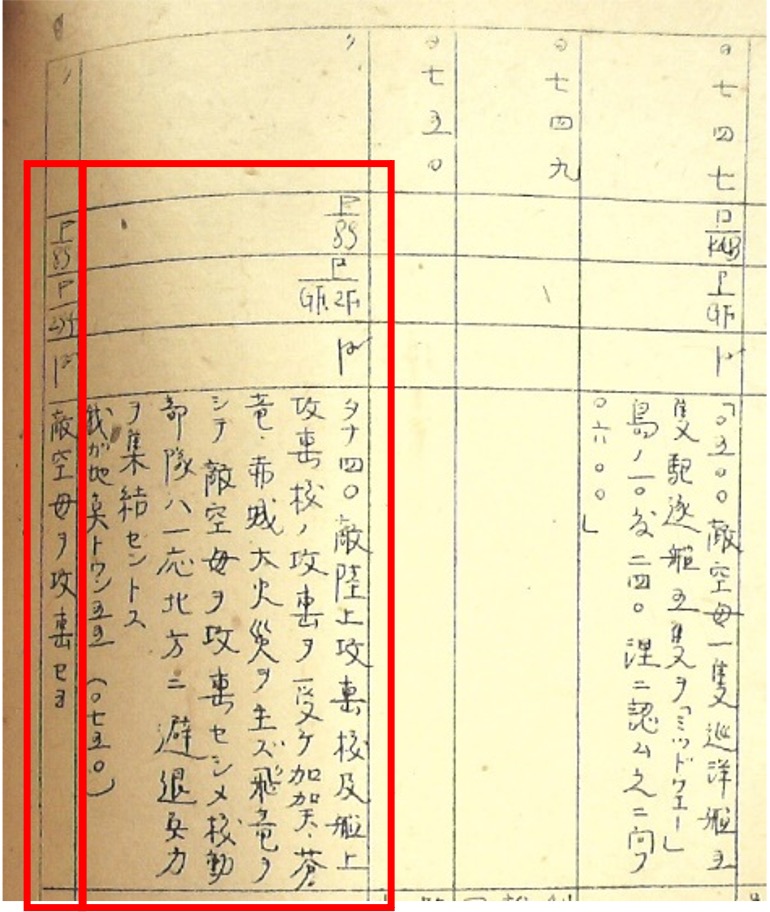 〇七四七
「〇五〇〇敵空母一隻巡洋艦五
隻駆逐艦五隻ヲ「ミッドウエー」
島ノ一〇度二四〇浬ニ認ム之ニ向フ
〇六〇〇」
〇七四九
〇七五〇
〃
P/8S
P/GF.2F
敵陸上攻撃機及艦上
攻撃機ノ攻撃ヲ受ケ加賀・蒼
竜・赤城大火災ヲ生ズ飛竜ヲ
シテ敵空母ヲ攻撃セシメ機動
部隊ハ一応北方ニ避退兵力
ヲ集結セントス
我ガ地点トウン五五(〇七五〇)
〃
P/8S
敵空母ヲ攻撃セヨ